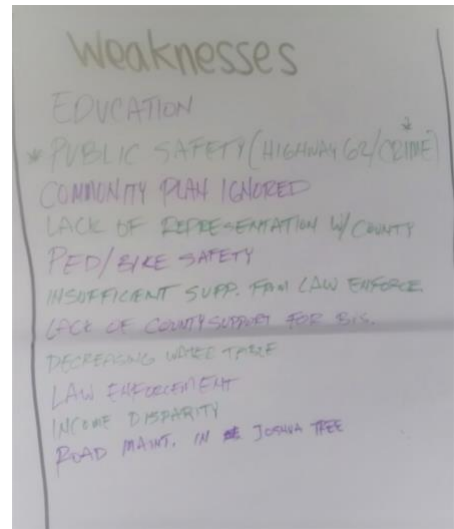 Weaknesses
EDUCATION
* PUBLIC SAFETY (HIGHWAY 62/CRIME) *
COMMUNITY PLAN IGNORED
LACK OF REPRESENTATION W/ COUNTY
PED/BIKE SAFETY
INSUFFICIENT SUPP. FROM LAW ENFORCE.
LACK OF COUNTY SUPPORT FOR BIS.
DECREASING WATER TABLE
LAW ENFORCEMENT
INCOME DISPARITY
ROAD MAINT. IN JOSHUA TREE